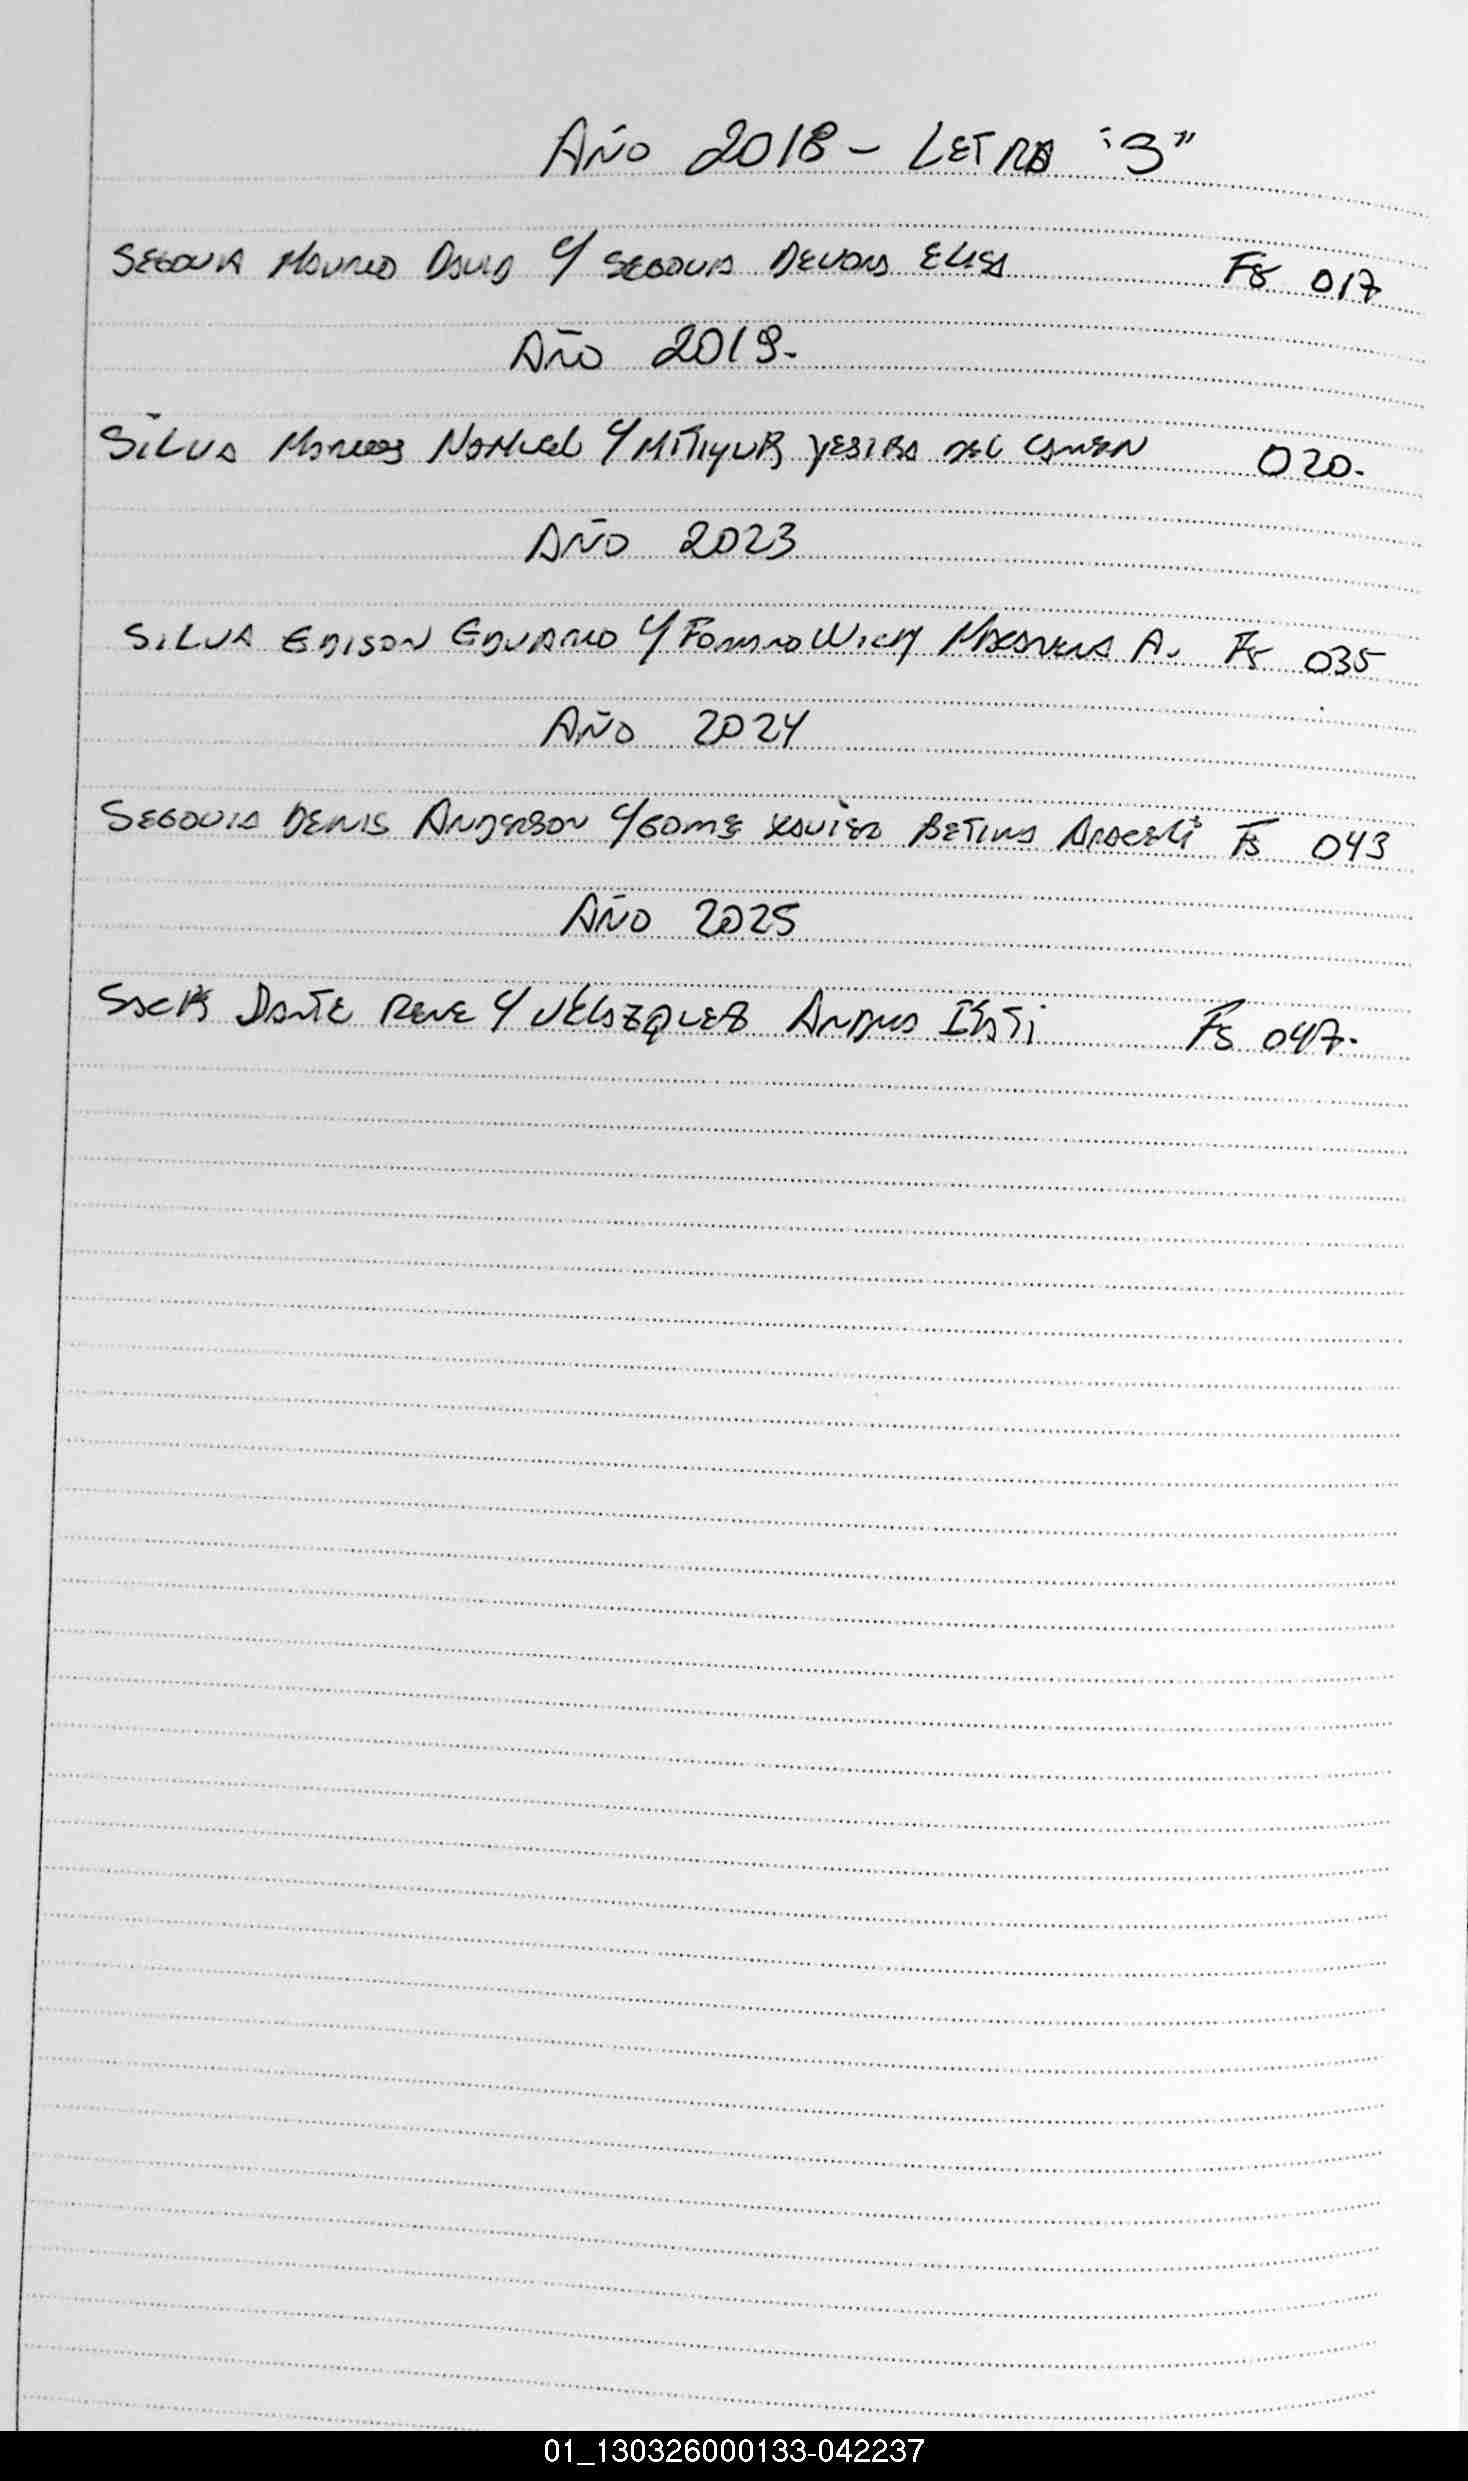 Año 2018 - LETRA "S"
SEGOVIA Mauricio David y/ SEGOVIA Elisa Fs 017
Año 2019.
SILVA Marcos Nahuel y/ YESICA DEL CARMEN 020.
AÑO 2023
SILVA EDISON EDUARDO y/ MACARENA A. Fs 035
AÑO 2024
SEGOVIA DENIS ANDERSON y/ GOME XAVIER BETINA ARACELI Fs 043
AÑO 2025
DANTE RENE y/ VELAZQUEZ ITATI Fs 047.
01_130326000133-042237